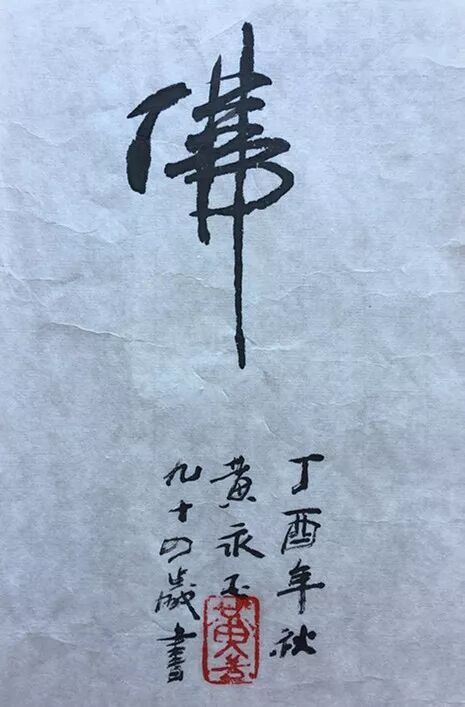 佛
丁酉年秋
黄永玉
九十四歲書